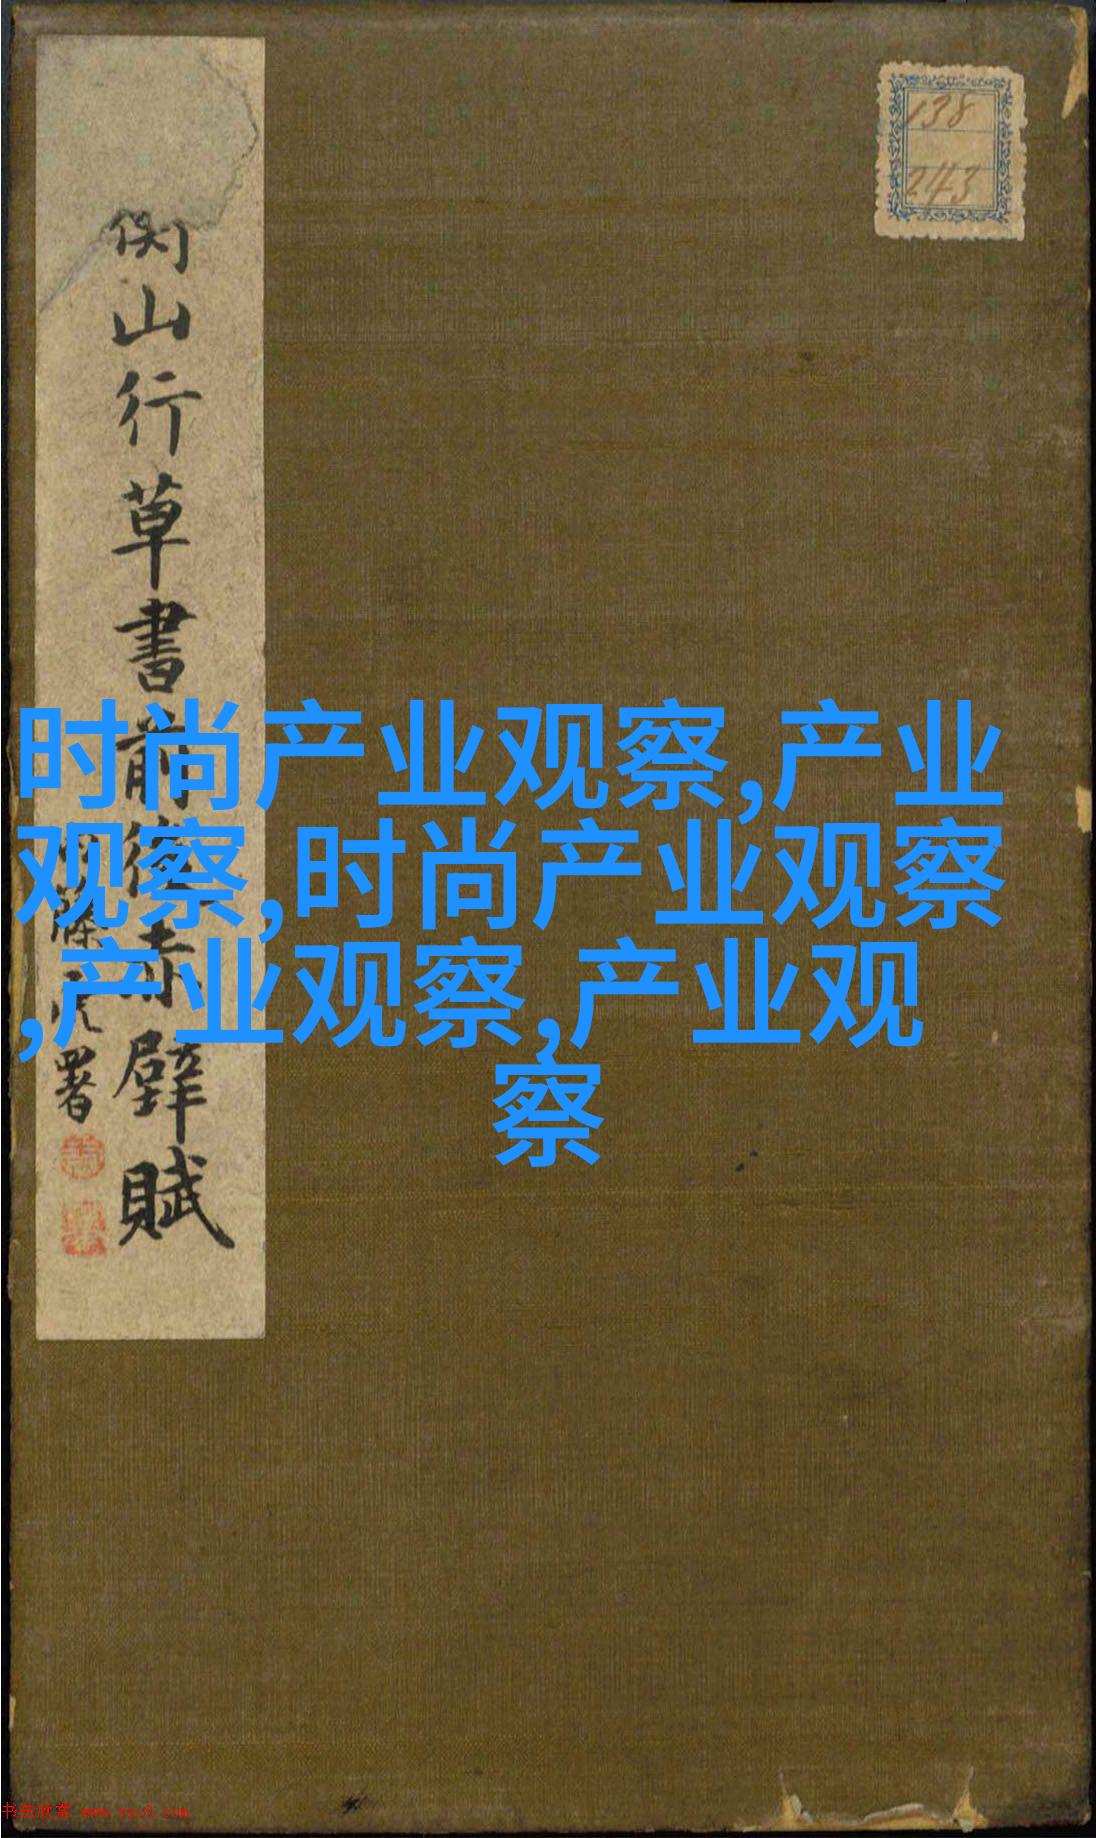 衡山行草書前後赤壁賦
署
138
243
时尚产业观察,产业
观察,时尚产业观察
,产业观察,产业观
察
书法欣赏 www.yac8.com